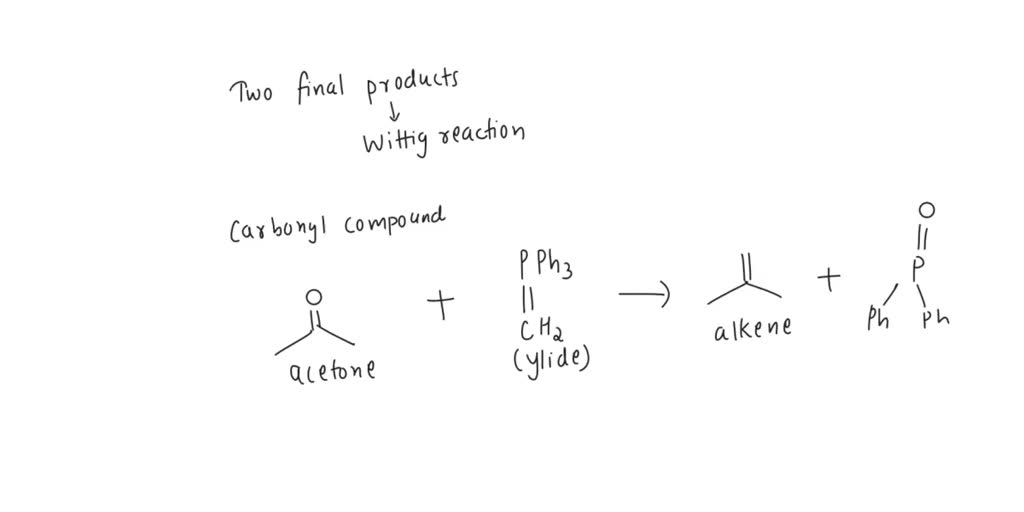 Two final products
↓
Wittig reaction
Carbonyl compound
O
+
PPh3
||
CH2
(ylide)
→
+
O
||
P
Ph Ph
acetone
alkene